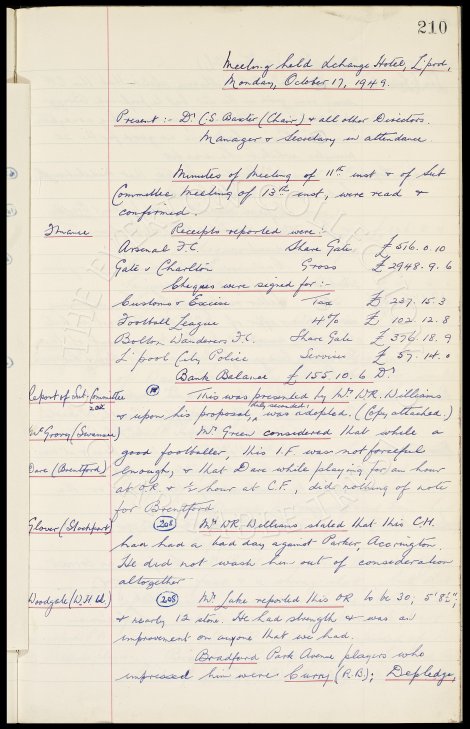 210
Meeting held Xchange Hotel, L'pool,
Monday, October 17, 1949.
Present :- Dr C.S. Baxter (Chair) & all other Directors.
Manager & Secretary in attendance
Minutes of Meeting of 11th inst & of Sub
Committee Meeting of 13th inst, were read &
confirmed.
Finance Receipts reported were :-
Arsenal F.C. Share Gate £ 516. 0. 10
Gate v Charlton Gross £ 2948. 9. 6
Cheques were signed for :-
Customs & Excise Tax £ 237. 15. 3
Football League 4% £ 102. 12. 8
Bolton Wanderers F.C. Share Gate £ 376. 18. 9
L'pool City Police Services £ 57. 14. 0
Bank Balance £ 155. 10. 6 Dr
Report of Sub-Committee This was presented by Mr W.R. Williams
& upon his proposal, duly seconded, was adopted. (Copy attached.)
McGrory (Swansea) Mr Green considered that while a
good footballer, this I.F. was not forceful
Dare (Brentford) enough, & that Dare while playing for an hour
at O.R & ½ hour at C.F., did nothing of note
for Brentford.
Glover (Stockport) 208 Mr W.R. Williams stated that this C.H.
had had a bad day against Parker, Accrington.
He did not wash him out of consideration
altogether
Woodgate (W.H. Utd.) 208 Mr Lake reported this O.R to be 30, 5'8½",
& nearly 12 stone. He had strength & was an
improvement on anyone that we had.
Bradford Park Avenue players who
impressed him were Curry (R.B); Depledge,